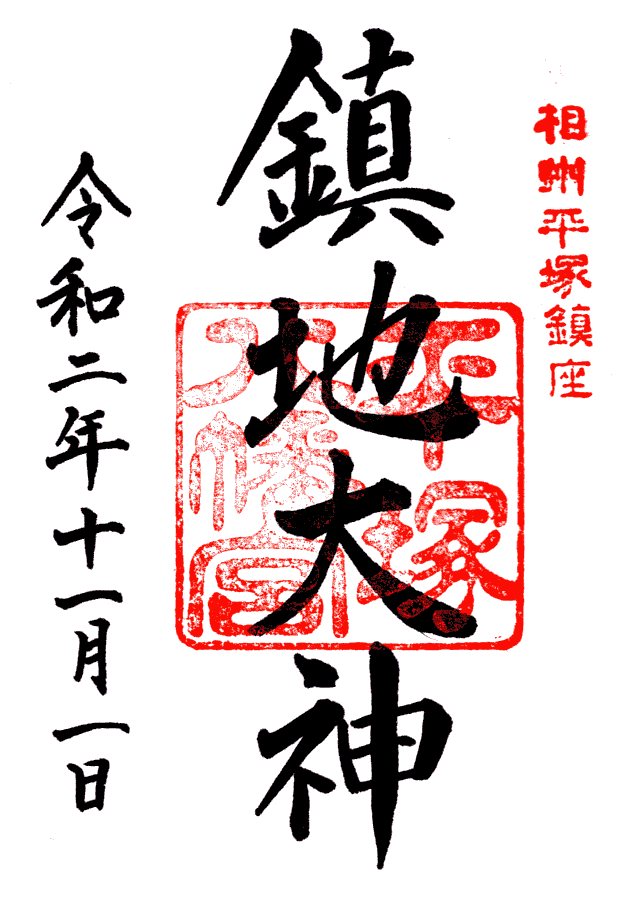 相州平塚鎮座
鎮地大神
平塚
八幡宮
令和二年十一月一日